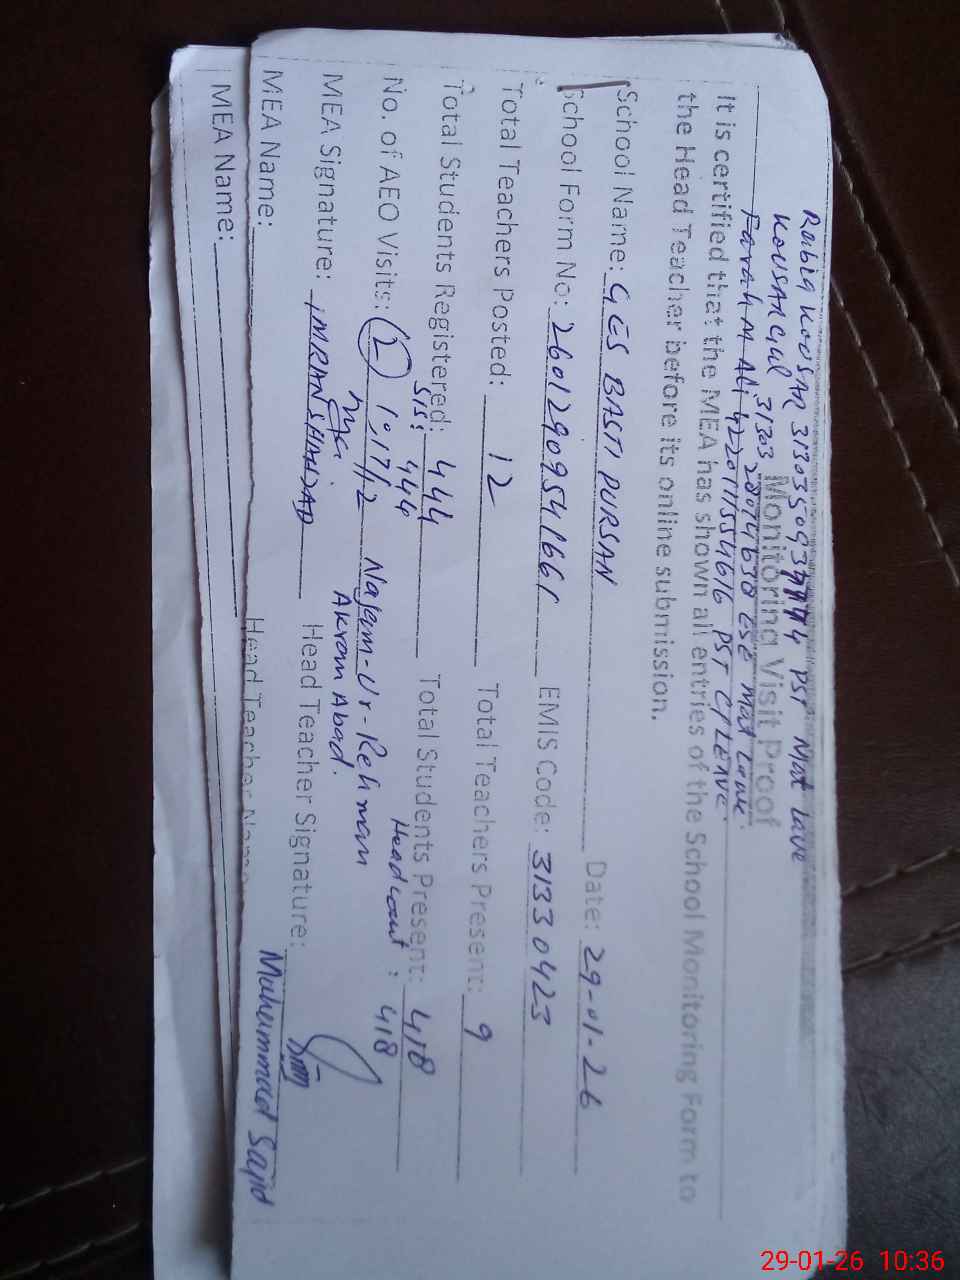 Rabia Kousar 3130350937774 PST Mat Lave
Kousar Gul 31303 28014638 ESE Mat Lave.
Farah M Ali 4220111554616 PST C/LEAVE.
Monitoring Visit Proof
It is certified that the MEA has shown all entries of the School Monitoring Form to
the Head Teacher before its online submission.
School Name: GES BASTI DURSAN Date: 29-01-26
School Form No: 26012909541661 EMIS Code: 31330423
Total Teachers Posted: 12 Total Teachers Present: 9
Total Students Registered: 444 Total Students Present: 418
SIS: 444 Headcount: 418
No. of AEO Visits: 2 1:17/12 Najam-Ur-Rehman
Akram Abad.
MEA Signature: Head Teacher Signature:
IMRAN SHAHZAD
MEA Name: Head Teacher Name Muhammad Sajid
MEA Name:
29-01-26 10:36